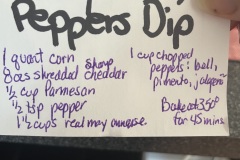 Peppers Dip
1 quart corn
8ozs shredded sharp cheddar
1/2 cup Parmesan
1/2 tsp pepper
1 1/2 cups real may
1 cup chopped
peppers: bell,
pimento, jalapeño
Bake at 350°
for 45 mins.